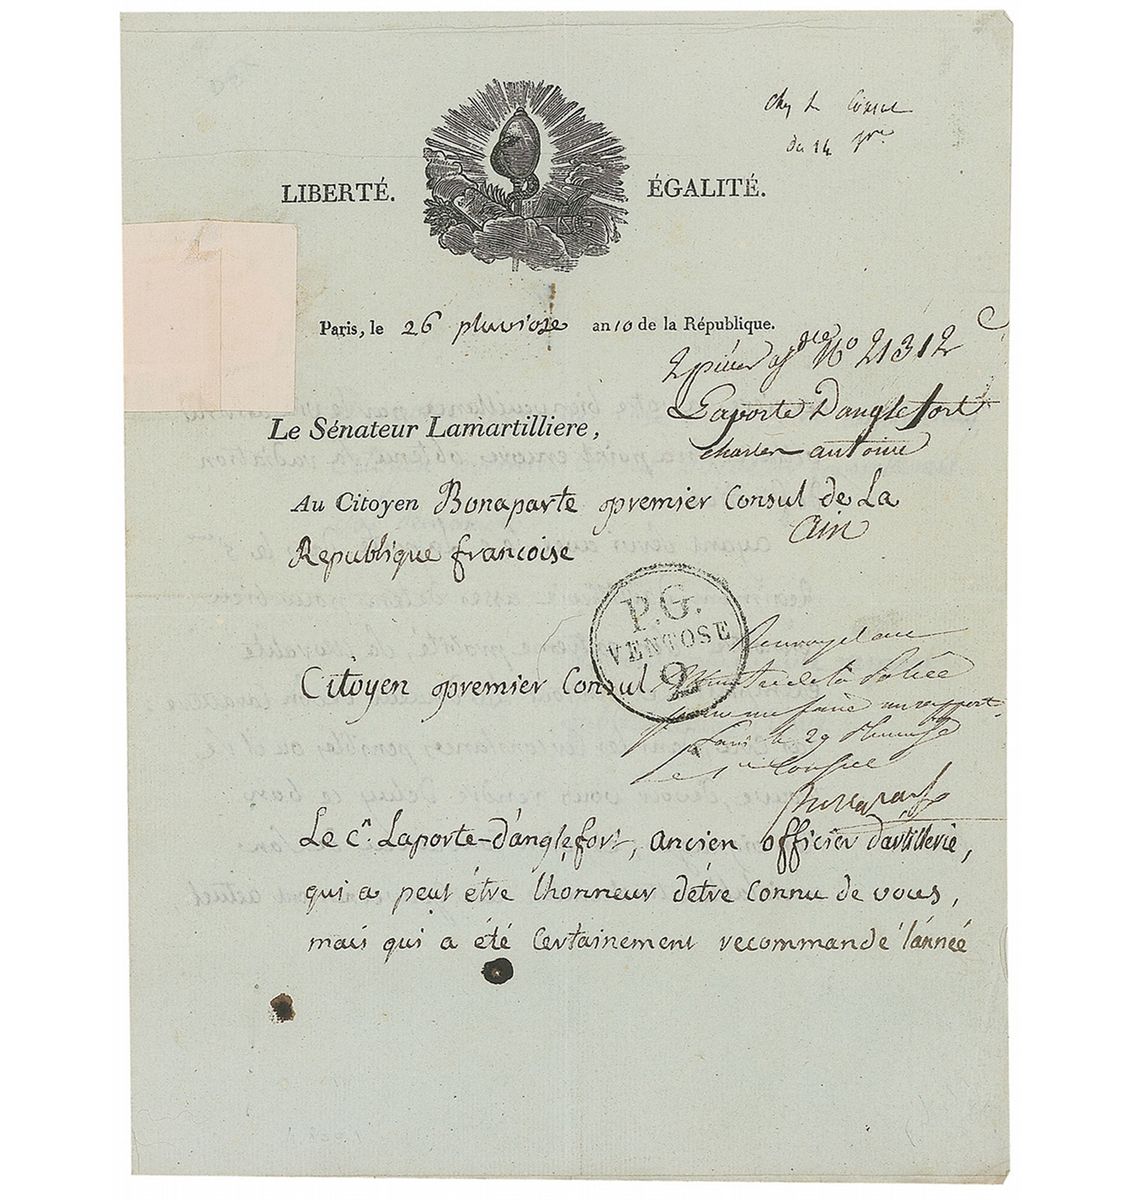 du 14
LIBERTÉ. ÉGALITÉ.
Paris, le 26 pluviose an 10 de la République.
2 pièces No 21312
Laporte Danglefort
charles antoine
Le Sénateur Lamartilliere,
Au Citoyen Bonaparte premier Consul de La
Ain
Republique francoise
P.G.
VENTOSE
2
Renvoyé au
Ministre de la Police
pour me faire un rapport
Paris le 29 Pluviose
Le 1er Consul
Bonaparte
Citoyen premier Consul
Le Cn. Laporte-d'anglefort, ancien officier d'artillerie,
qui a peut étre lhonneur detre connu de vous,
mais qui a été certainement recommandé lánneé